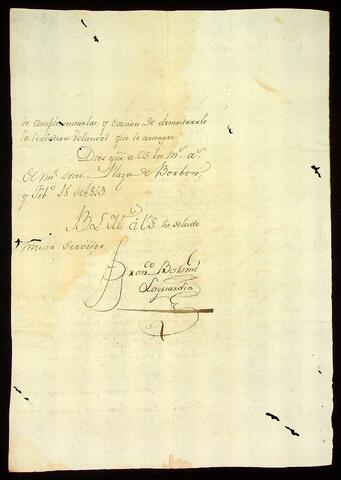 de complimentarlas, y ocasion de demostrarle
la verdadera voluntad que le consagro.
Dios gũe a VS los ms. as.
de mi deseo. Plaza de Borbon
y Feb.o 18 de 1813.
B. L. M. a VS. su
menor servidor
Fran.co
Laguardia